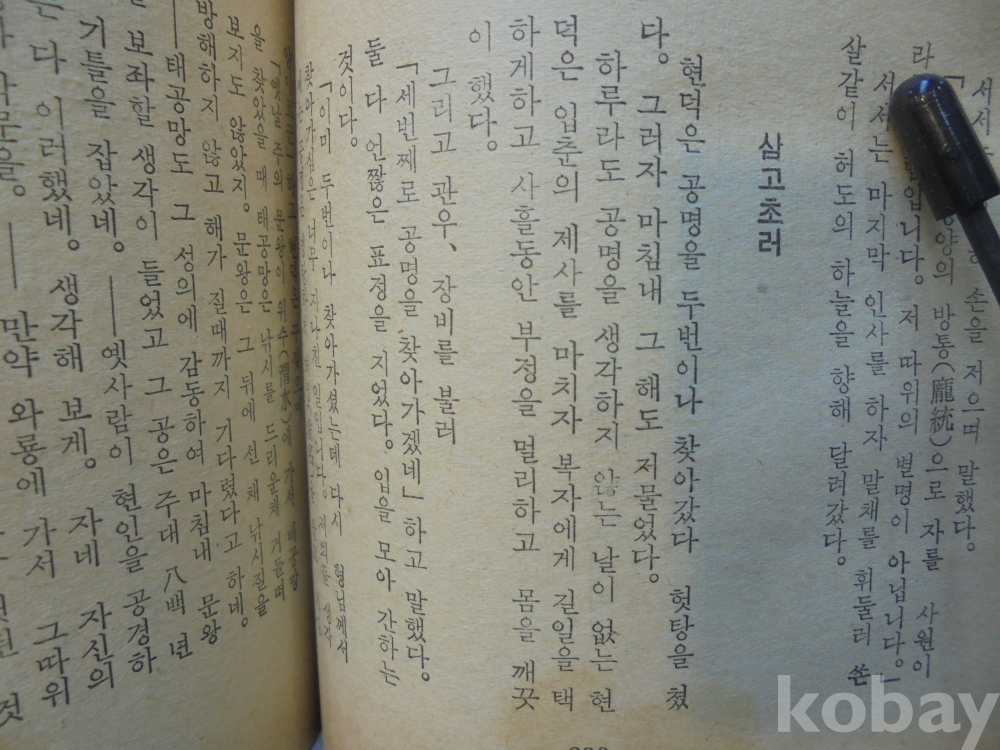 서서는 손을 저으며 말했다.
양의 방통(龐統)으로 자를 사원이
라 합니다. 저 따위의 별명이 아닙니다.」
서서는 마지막 인사를 하자 말채를 휘둘러 쏜
살같이 허도의 하늘을 향해 달려갔다.
삼고초려
현덕은 공명을 두번이나 찾아갔다 헛탕을 쳤
다. 그러자 마침내 그 해도 저물었다.
하루라도 공명을 생각하지 않는 날이 없는 현
덕은 입춘의 제사를 마치자 복자에게 길일을 택
하게하고 사흘동안 부정을 멀리하고 몸을 깨끗
이 했다.
그리고 관우、장비를 불러
「세번째로 공명을 찾아가겠네」하고 말했다.
둘 다 언짢은 표정을 지었다. 입을 모아 간하는
것이다.
「이미 두번이나 찾아가셨는데 다시 형님께서
찾아가심은 너무 지나친 일입니다.
「옛날 주의 문왕이 위수(渭水)에 가서 태공망
을 찾았을 때 태공망은 낚시를 드리운채 거들떠
보지도 않았지. 문왕은 그 뒤에 선 채 낚시질을
방해하지 않고 해가 질때까지 기다렸다고 하네.
태공망도 그 성의에 감동하여 마침내 문왕
을 보좌할 생각이 들었고 그 공은 주대 八백 년
기틀을 잡았네. ──옛사람이 현인을 공경하
는 다 이러했네. 생각해 보게. 자네 자신의
만약 와룡에 가서 그따위
것
kobay